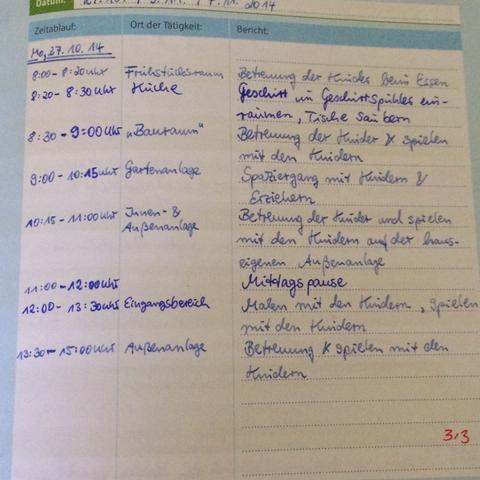 Datum: / 7.11.2014
Zeitablauf: Ort der Tätigkeit: Bericht:
Mo, 27.10.14
8:00 - 8:20 Uhr Frühstücksraum Betreuung der Kinder beim Essen
8:20 - 8:30 Uhr Küche Geschirr in Geschirrspühler ein-
räumen, Tische säubern
8:30 - 9:00 Uhr „Bauraum" Betreuung der Kinder & spielen
mit den Kindern
9:00 - 10:15 Uhr Gartenanlage Spaziergang mit Kindern &
Erziehern
10:15 - 11:00 Uhr Innen- & Betreuung der Kinder und spielen
Außenanlage mit den Kindern auf der haus-
eigenen Außenanlage
11:00 - 12:00 Uhr Mittagspause
12:00 - 13:30 Uhr Eingangsbereich Malen mit den Kindern, spielen
mit den Kindern
13:30 - 15:00 Uhr Außenanlage Betreuung & spielen mit den
Kindern
3,3